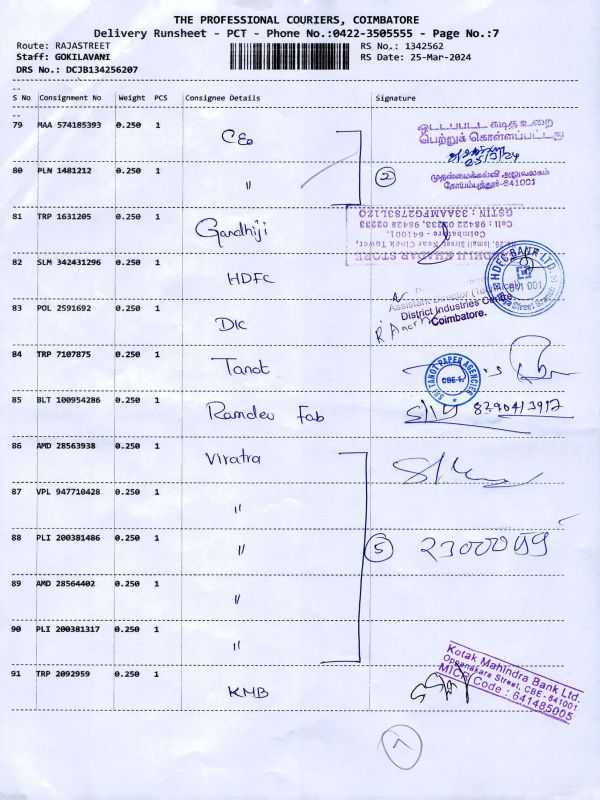 THE PROFESSIONAL COURIERS, COIMBATORE
Delivery Runsheet - PCT - Phone No.:0422-3505555 - Page No.:7
Route: RAJASTREET
RS No.: 1342562
Staff: GOKILAVANI
RS Date: 25-Mar-2024
DRS No.: DCJB134256207
S No Consignment No Weight PCS Consignee Details Signature
79 MAA 574185393 0.250 1 CEO
ஒட்டப்பட்ட கடித உறை
பெற்றுக் கொள்ளப்பட்டது
25/3/24
80 PLN 1481212 0.250 1 " 2
முதன்மைக்கல்வி அலுவலகம்
கோயம்புத்தூர்-641001
81 TRP 1631205 0.250 1 Gandhiji
GSTIN : 33AAMFG2783L1ZO
Cell : 98422 02233, 98428 02233
Coimbatore - 641 001.
Ismail Street, Near Clock Tower,
KHADAR STORE
82 SLM 342431296 0.250 1 HDFC
HDFC BANK LTD.
641 001
Raja Street Branch
83 POL 2591692 0.250 1 DIC
Assistant Director (Technical)
District Industries Centre
Coimbatore.
84 TRP 7107875 0.250 1 Tanot
SRI TANOT PAPER AGENCIES
CBE-1.
85 BLT 100954286 0.250 1 Ramdev Fab
86 AMD 28563938 0.250 1 Viratra
87 VPL 947710428 0.250 1 "
88 PLI 200381486 0.250 1 " 5
89 AMD 28564402 0.250 1 "
90 PLI 200381317 0.250 1 "
91 TRP 2092959 0.250 1 KMB
Kotak Mahindra Bank Ltd.
Oppanakara Street, CBE - 641001
MICR Code : 641485005